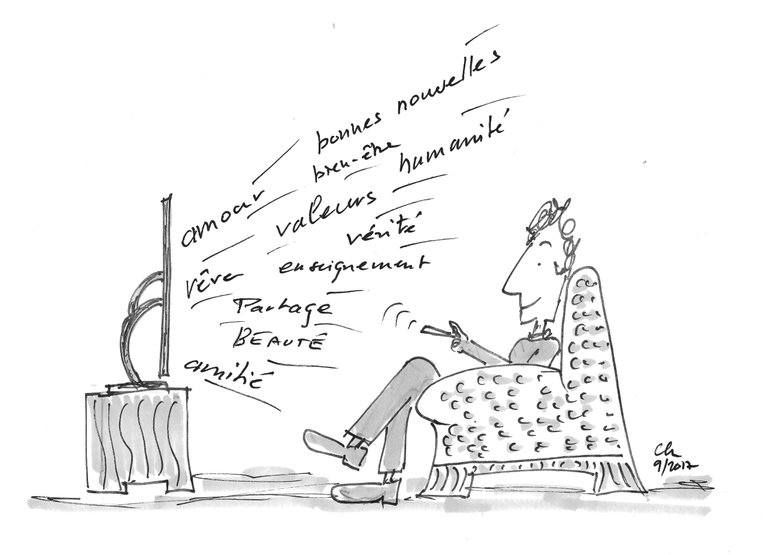 bonnes nouvelles
bien-être
amour
valeurs humanité
vérité
rêve
enseignement
Partage
BEAUTÉ
amitié
Ch
9/2017